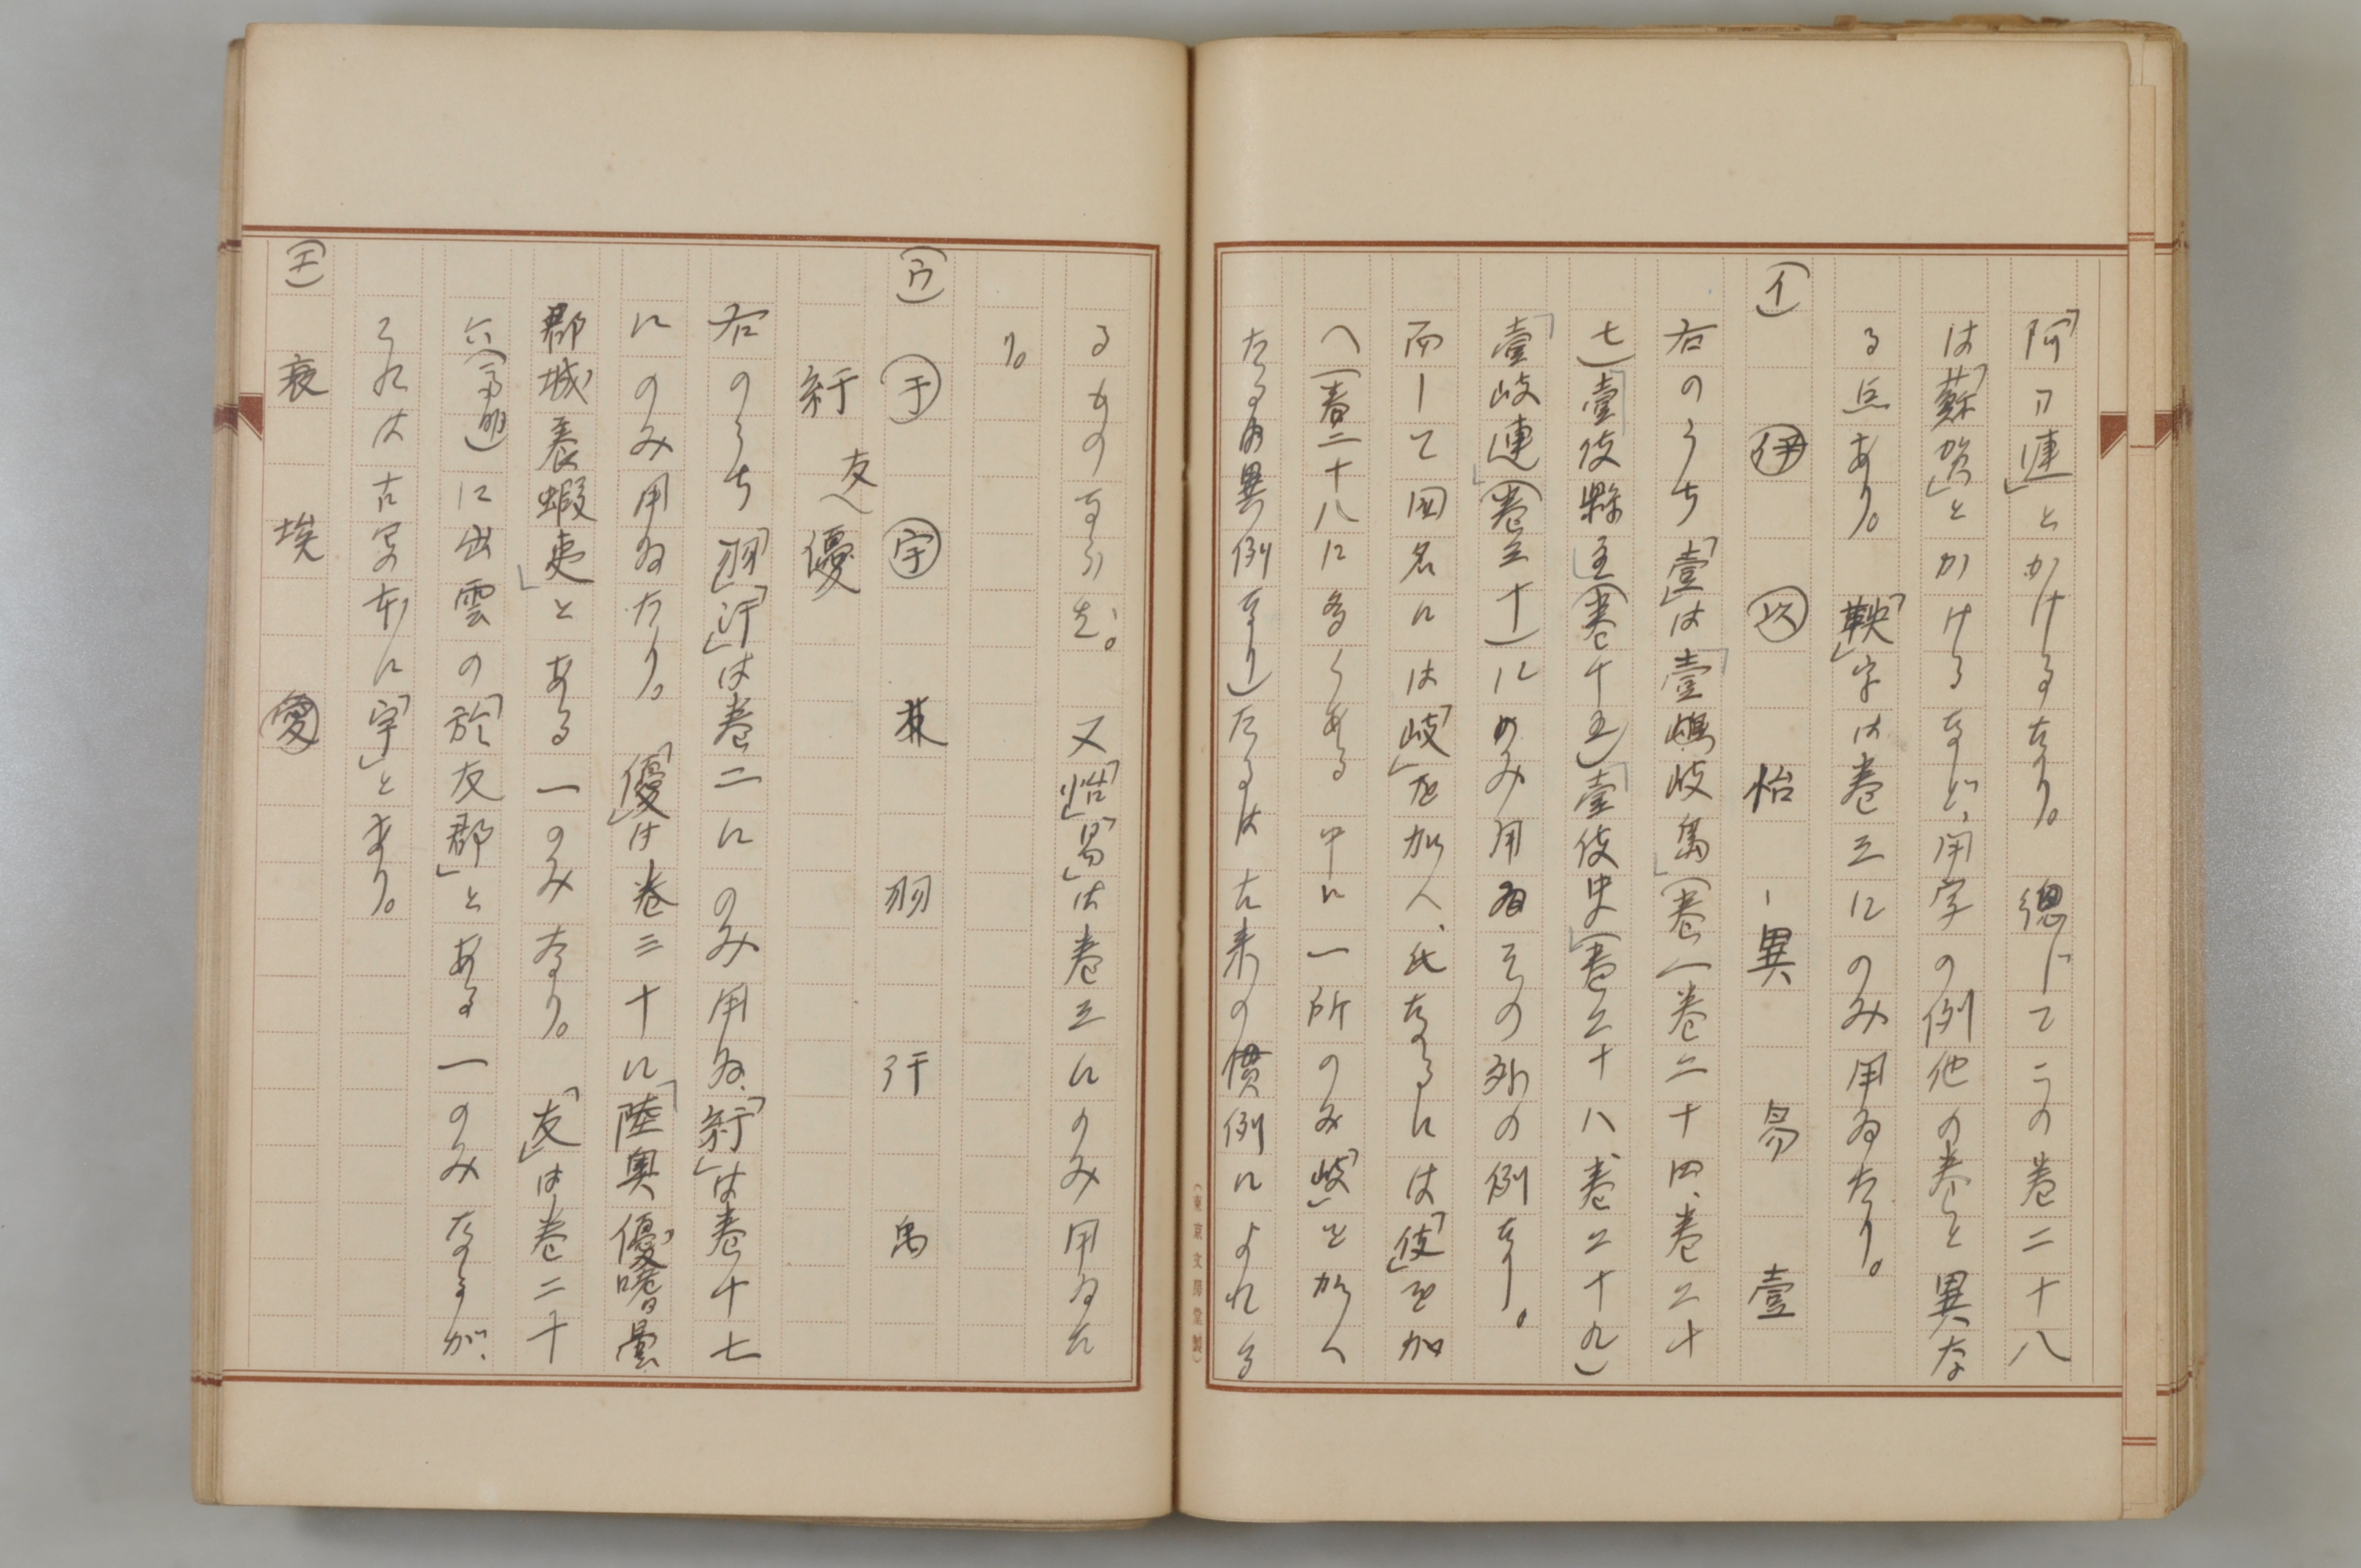 「阿曇連」とかけるなり。總じてこの巻二十八
は「蘇賀」とかけるなど、用字の例他の巻と異な
る点あり。「鞅」字は巻三にのみ用ゐたり。
(イ) 伊 以 怡 異 易 壹
右のうち「壹」は「壹嶋岐島」(巻一巻二十四、巻二十
七)「壹伎縣主」(巻十五)「壹伎史」(巻二十八巻二十九)
「壹岐連」(巻三十)にのみ用ゐその外の例なり。
而して国名には「岐」を加へ、氏なるには「伎」を加
へ(巻二十八に多くある中に一所のみ「岐」を加へ
たるは異例なり)たるは古来の慣例によれる
るものならむ。又「怡」「易」は巻三にのみ用ゐた
り。
(ウ) 于 宇 菟 羽 汙 禹
紆 友 優
右のうち「羽」「汙」は巻二にのみ用ゐ「紆」は巻十七
にのみ用ゐたり。「優」は巻二十に「陸奥優𡺸曇
郡城養蝦夷」とある一のみなり。「友」は巻二十
六(斉明)に出雲の「於友郡」とある一のみなるが、
これは古写本に「宇」とあり。
(エ) 哀 埃 愛
(東京文房堂製)